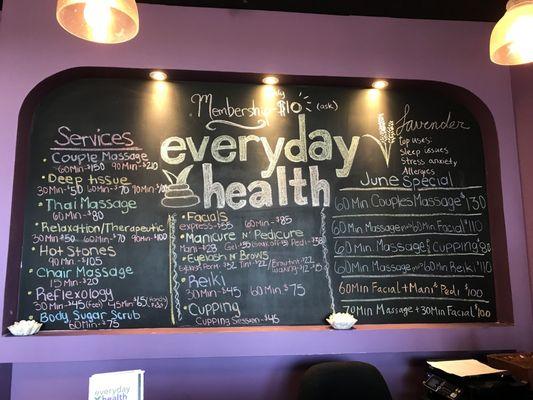 Membership only $10 (ask)
everyday
health
Services
• Couple Massage
60min-$150 90min-$210
• Deep tissue
30min-$50 60min-$70 90min-
• Thai Massage
60min-$80
• Relaxation/Therapeutic
30min $50 60min-$70 90min-$100
• Hot Stones
90min-$105
• Chair Massage
15min-$20
• Reflexology
30min-$45 45min-
• Body Sugar Scrub
60min-$75
• Facials
60min-$85
• Manicure n' Pedicure
Mani-$28
• Eyelash n' Brows
• Reiki
30min-$45 60min $75
• Cupping
Cupping Session-$45
Lavender
top uses:
Sleep issues
Stress anxiety
Allergies
June Special
60min Couples Massage $130
60min Massage 60min Facial $110
60min Massage & Cupping
60min Massage 60min Reiki $110
60min Facial + Mani & Pedi $100
70min Massage + 30min Facial $100
everyday
health